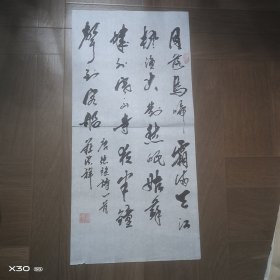 月落烏啼霜滿天江
楓漁火對愁眠姑蘇
城外寒山寺夜半鐘
聲到客船
唐張继詩一首
X30